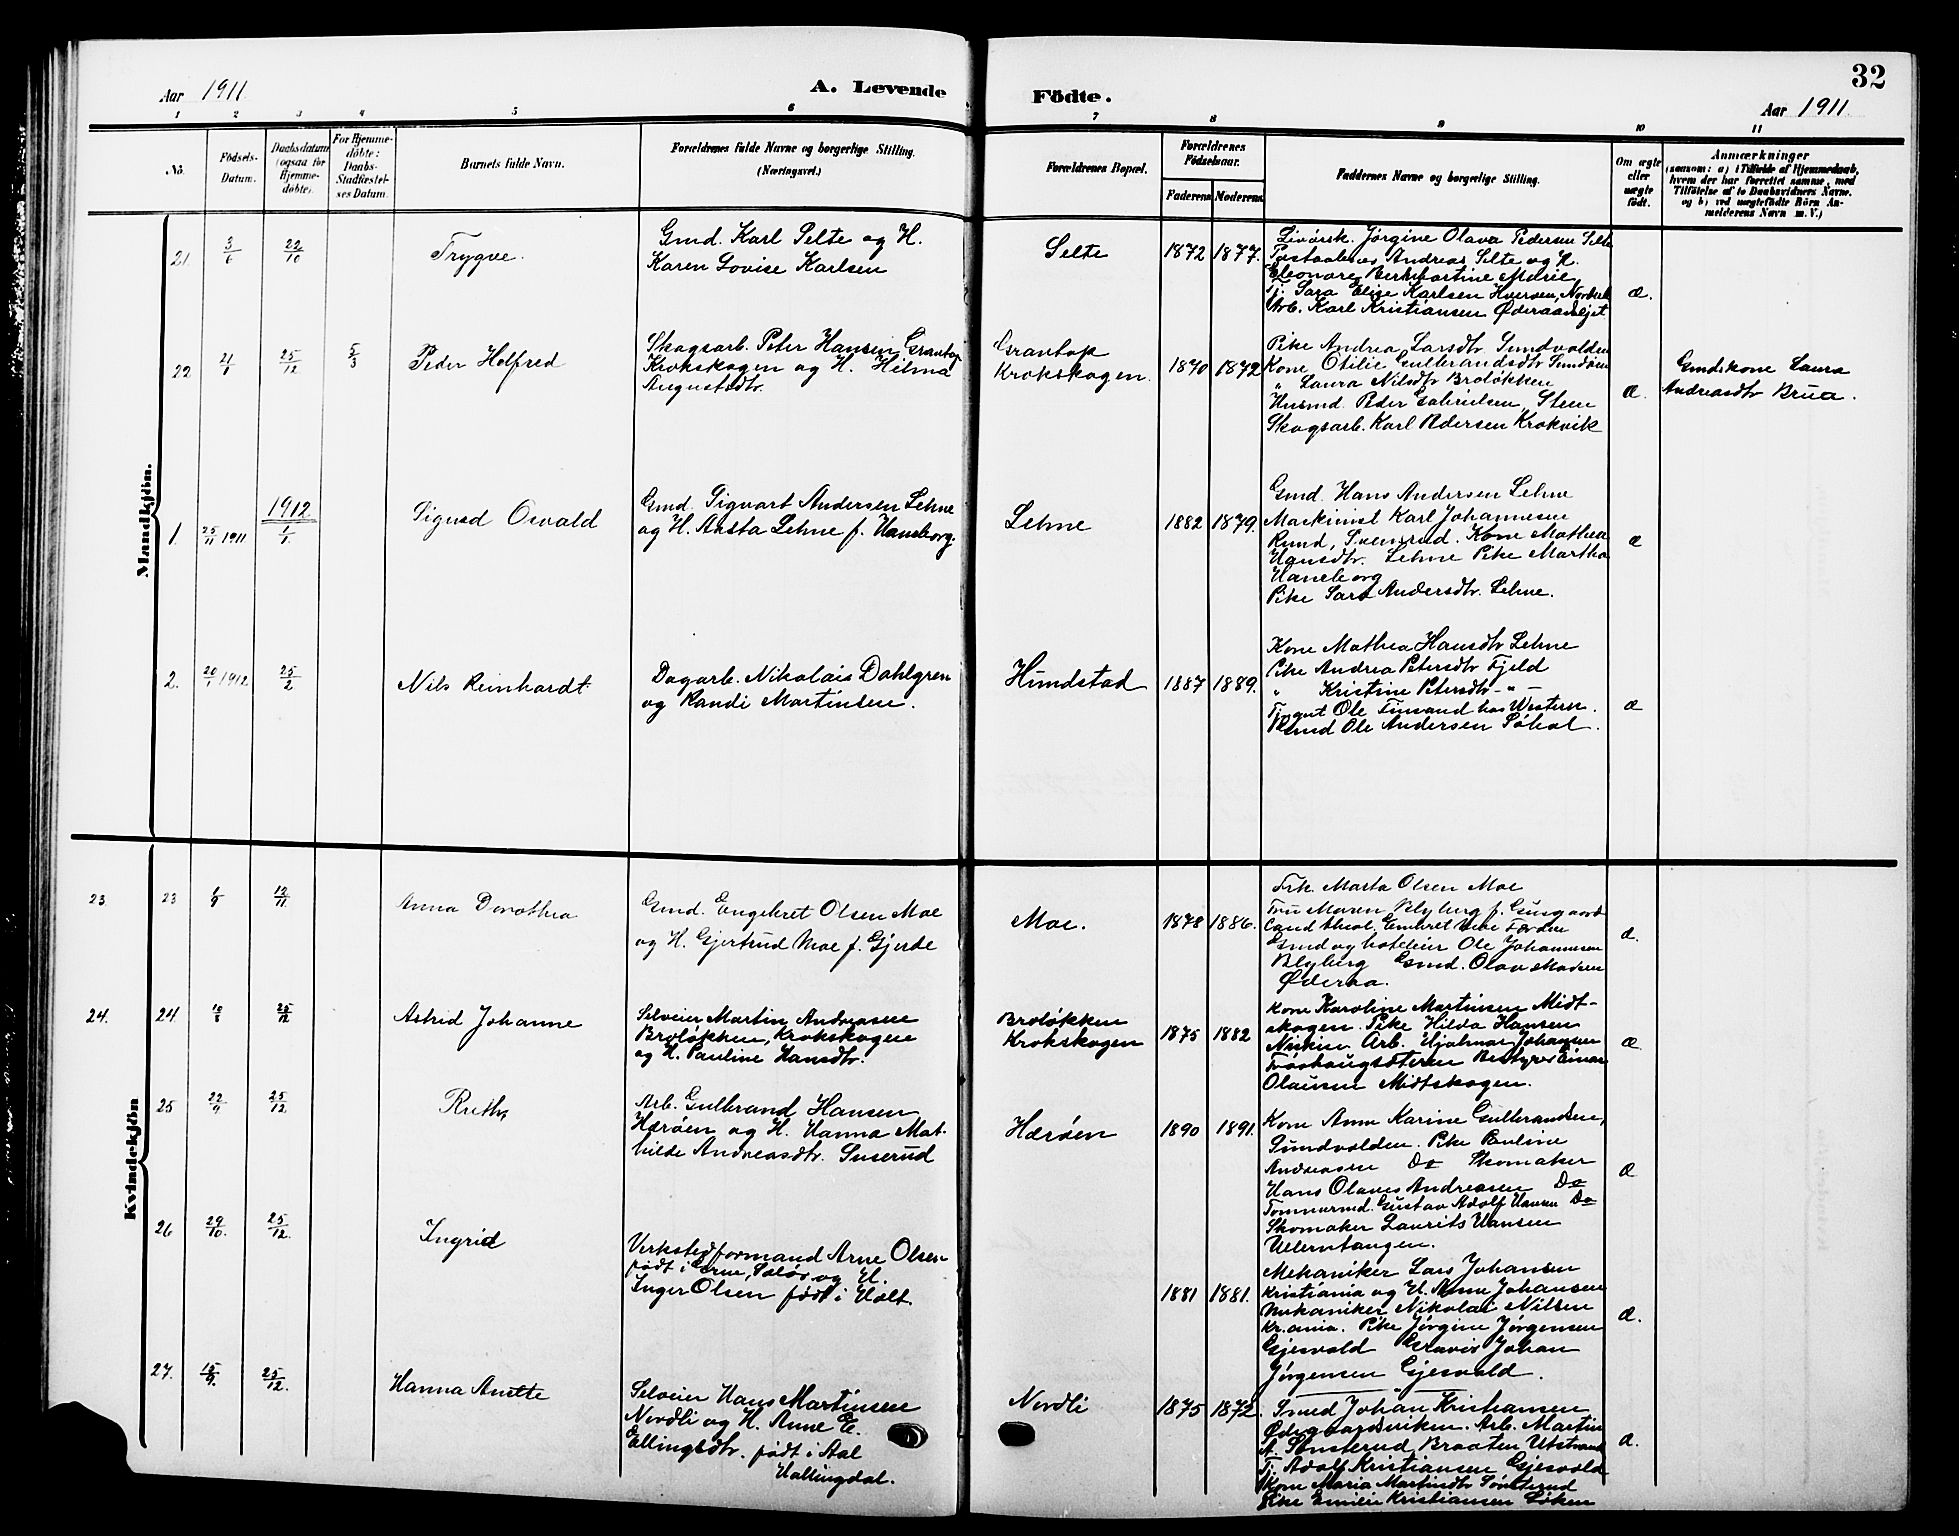 Aar 1911.
A. Levende
Födte.
32
Aar 1911.
1 2 3 4 5 6 7 8 9 10 11
No.
Födsels-
Datum.
Daabsdatum
(ogsaa for
Hjemme-
döbte).
For Hjemme-
döbte:
Daabs-
Stadfæstel-
ses Datum.
Barnets fulde Navn.
Forældrenes fulde Navne og borgerlige Stilling.
(Næringsvei.)
Forældrenes Bopæl.
Forældrenes
Födselsaar.
Faderens Moderens
Faddernes Navne og borgerlige Stilling.
Om ægte
eller
uægte
født.
Anmærkninger
(saasom: a) i Tilfælde af Hjemmedaab,
hvem der har forrettet samme, med
Tilföielse af to Daabsvidners Navne,
og b) ved uægtefödte Börn An-
melderens Navn m. V.)
Mandkjön.
21. 3/6 22/10
Trygve.
Gmd. Karl Selte og H.
Karen Lovise Karlsen
Selte
1872 1877.
Jørgine Olava Pedersen Selte
Andreas Selte og H.
Eleonore Marie
Tj. Sara Elise Karlsen
Arb. Karl Kristiansen
æ.
22 21/1 25/12 5/3
Peder Holfred
Skogsarb. Peter Hansen Grantop
Krokskogen og H. Hilma
Augustsdtr.
Grantop
Krokskogen.
1870 1872
Pike Andrea Larsdtr. Sundvolden
Kone Otilie Gulbrandsdtr Sundøen
" Laura Nilsdtr Broløkken
Husmd. Peder Gabrielsen, Steen
Skogsarb. Karl Pedersen Krokvik
æ.
Gmdskone Laura
Andreasdtr Brua.
1. 25/11 1911
1912
1/1.
Sigurd Osvald
Gmd. Sigvart Andersen Lehne
og H. Aasta Lehne f. Haneborg.
Lehne
1882 1879.
Gmd. Hans Andersen Lehne
Maskinist Karl Johannesen
Rund, Svensrud. Kone Mathea
Hansdtr. Lehne Pike Martha
Haneborg
Pike Sara Andersdtr. Lehne.
æ
2. 20/1 1912 25/2
Nils Reinhardt
Dagarb. Nikolais Dahlgren
og Randi Martinsen.
Hundstad
1887 1889.
Kone Mathea Hansdtr Lehne
Pike Andrea Petersdtr Fjeld
" Kristine Petersdtr -"-
Tj.gut Ole hos Western.
Ole Andersen Søhol.
æ
Kvindekjön
23. 23 1/9 12/11
Anna Dorothea
Gmd. Engebret Olsen Moe
og H. Gjertrud Moe f. Gjerde
Moe.
1878 1886.
Frk. Marta Olsen Moe
Fru Maren Blyberg f.
Cand theol. Embret Moe
Gmd og hoteleier Ole Johannesen
Blyberg Gmd. Olav Madsen
Øderaa.
æ.
24. 24. 10/8 25/12
Astrid Johanne
Selveier Martin Andreasen
Broløkken, Krokskogen
og H. Pauline Hansdtr.
Broløkken
Krokskogen
1875 1882
Kone Karoline Martinsen Midt-
skogen. Pike Hilda Hansen
Arb. Hjalmar Johansen
Bestyrer Einar
Olausen Midtskogen.
æ.
25 22/9 25/12
Ruth
Arb. Gulbrand Hansen
Hærøen og H. Hanna Mat-
hilde Andreasdtr. Suserud
Hærøen
1890 1891.
Kone Anne Karine Gulbrandsen,
Sundvolden. Pike Pauline
Andreasen Do Skomaker
Hans Olaves Andreasen Do
Tømmermd. Gustav Adolf Hansen Do
Skomaker Laurits Hansen
Ulerntangen.
æ
26 29/10. 25/12.
Ingrid
Verkstedformand Arne Olsen
født i Solør og H.
Inger Olsen født i Holt.
1881 1881.
Mekaniker Lars Johansen
Kristiania og H. Anna Johansen
Mekaniker Nikolai Nilsen
Kr.ania. Pike Jørgine Jørgensen
Gjesvold Gravør Johan
Jørgensen Gjesvold.
æ.
27. 15/9. 25/12.
Hanna Anette
Selveier Hans Martinsen
Nordli og H. Anne E.
Ellingsdtr. født i Aal
Hallingdal.
Nordli
1875 1872.
Smed Johan Kristiansen
Ødegaardsviken. Arb. Martin
A. Sønsterud Braaten Utstranden
Tj. Adolf Kristiansen Gjesvold
Kone Maria Martinsdtr Sønsterud
Pike Emilie Kristiansen Løken
æ.